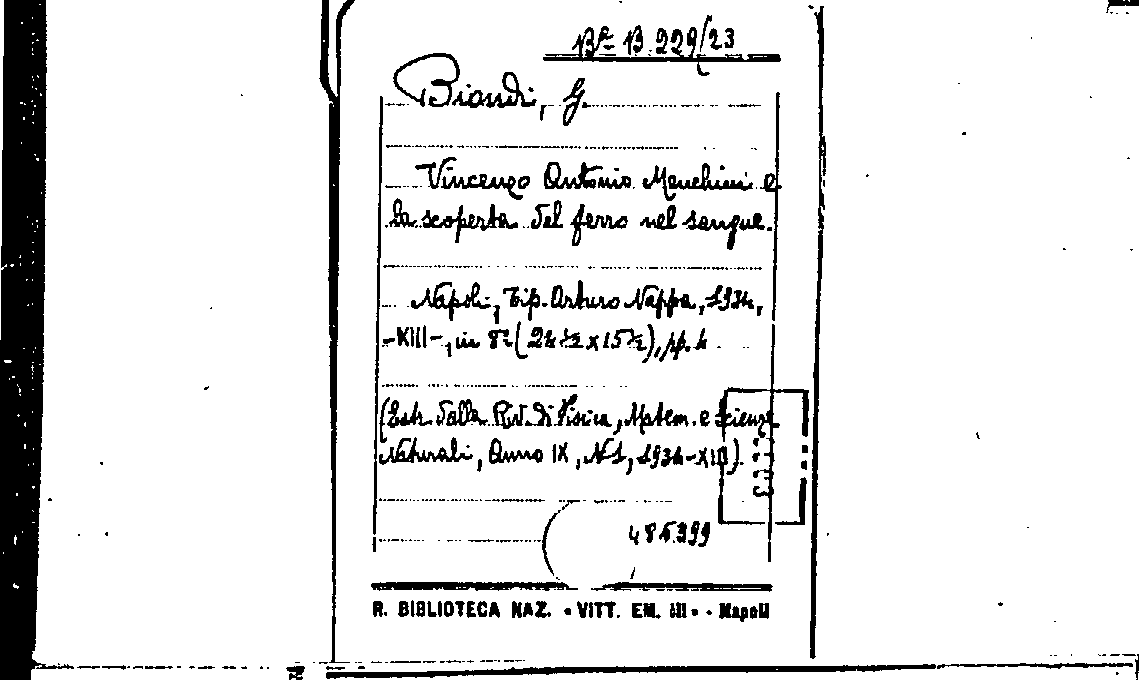 Bª B. 229/23
Biondi, G.
Vincenzo Antonio Menghini e
la scoperta del ferro nel sangue.
Napoli, Tip. Arturo Nappa, 1934,
-XIII-, in 8° (24 ½ x 15 ½), pp. 4
(Estr. dalla Riv. di Fisica, Matem. e Scienze
Naturali, Anno IX, N 1, 1934-XIII).
R. BIBLIOTECA NAZ. « VITT. EM. III » - Napoli